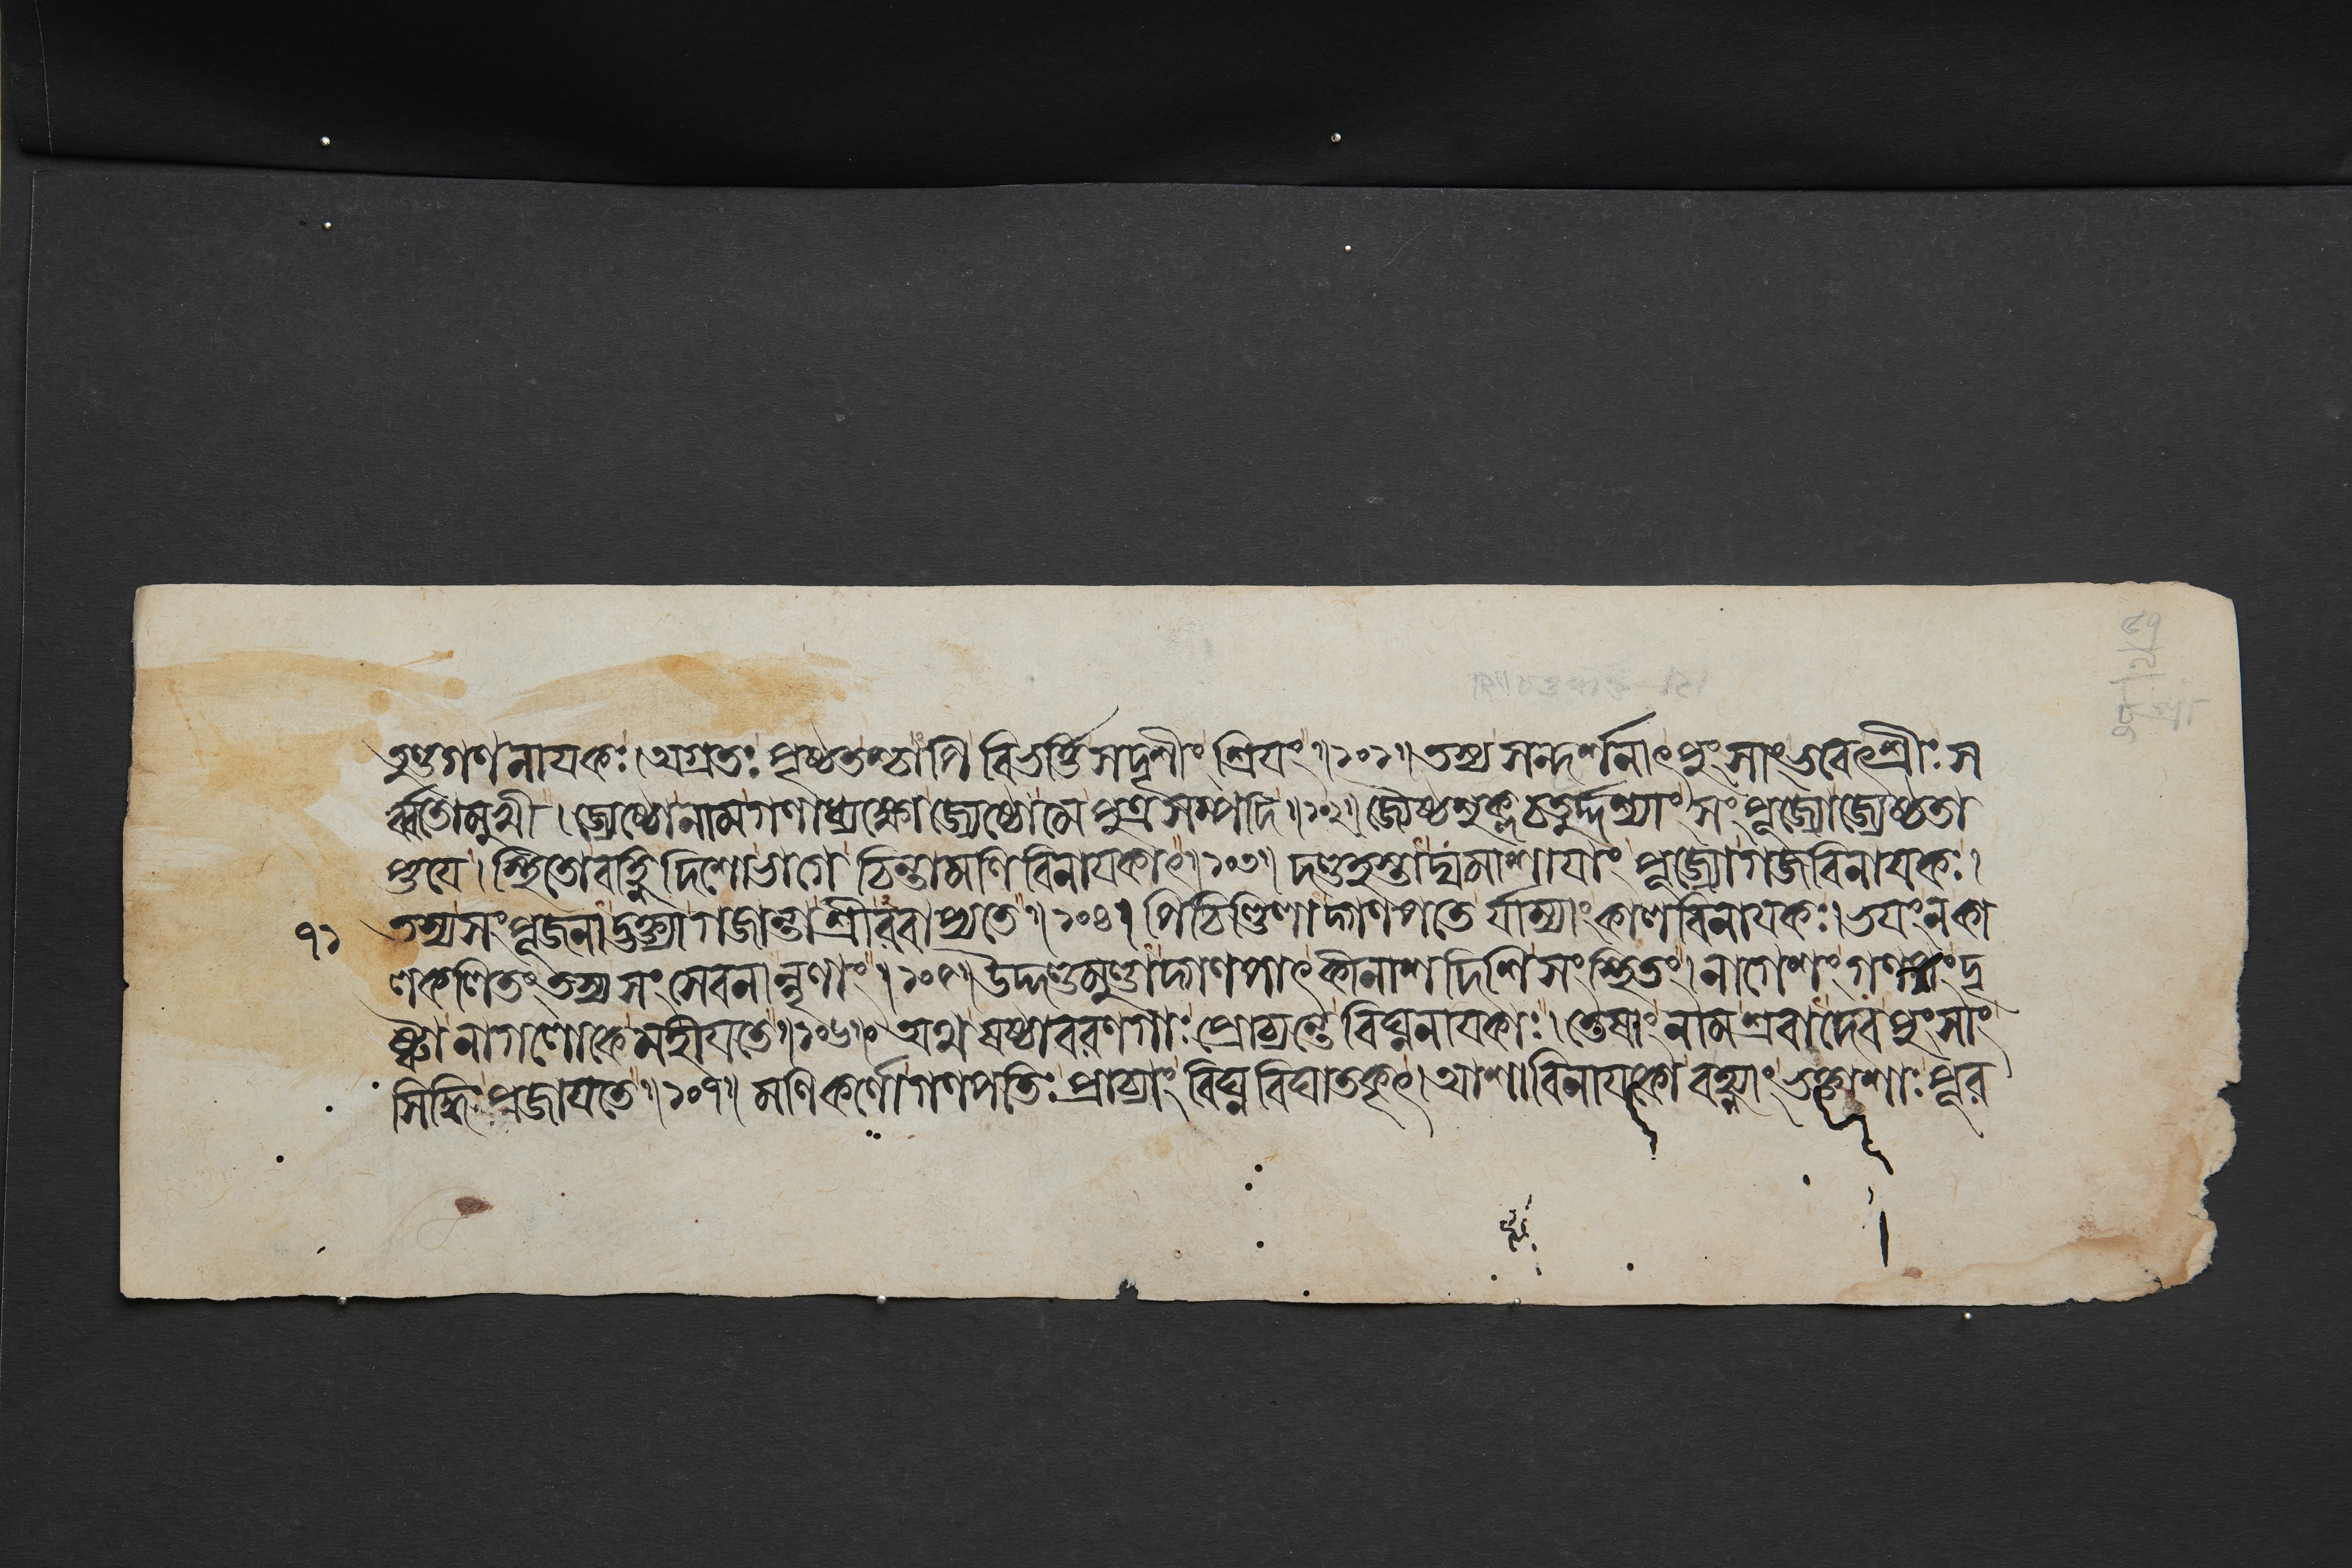 তুণ্ডগণনায়কঃ। অগ্রতঃ পৃষ্ঠতশ্চাপি বিভর্ত্তি সদৃশীং শ্রিয়ং॥১০১॥ তস্য সন্দর্শনাৎ পুংসাং ভবেৎশ্রীঃ স
র্ব্বতোমুখী। জ্যেষ্ঠো নাম গণাধ্যক্ষো জ্যেষ্ঠো মে পুত্রসম্পদি॥১০২॥ জ্যেষ্ঠশুক্লচতুর্দ্দশ্যাং সংপূজ্যো জ্যেষ্ঠতা
প্তয়ে। স্থিতো বহ্নিদিশো ভাগে চিন্তামণিবিনায়কাৎ॥১০৩॥ দণ্ডহস্তাদ্যমাশায়াং পূজ্যো গজবিনায়কঃ।
৭১ তস্য সংপূজনাদ্ভক্ত্যা গজান্তা শ্রীরবাপ্যতে॥১০৪॥ পিচিণ্ডিলাদ্গণপতের্যাম্যাং কালবিনায়কঃ। ভয়ং ন কা
লকলিতং তস্য সংসেবনান্নৃণাং॥১০৫॥ উদ্দণ্ডমুণ্ডাদ্গণপাৎ কীনাশদিশি সংস্থিতং। নাগেশং গণপং দৃ
ষ্ট্বা নাগলোকে মহীয়তে॥১০৬॥ অথ ষষ্ঠাবরণগাঃ প্রোচ্যন্তে বিঘ্ননায়কাঃ। তেষাং নামশ্রবাদেব পুংসাং
সিদ্ধিঃ প্রজায়তে॥১০৭॥ মণিকর্ণো গণপতিঃ প্রাচ্যাং বিঘ্নবিঘাতকৃৎ। আশাবিনায়কো বহ্ন্যাং ভক্তাশাঃ পূর